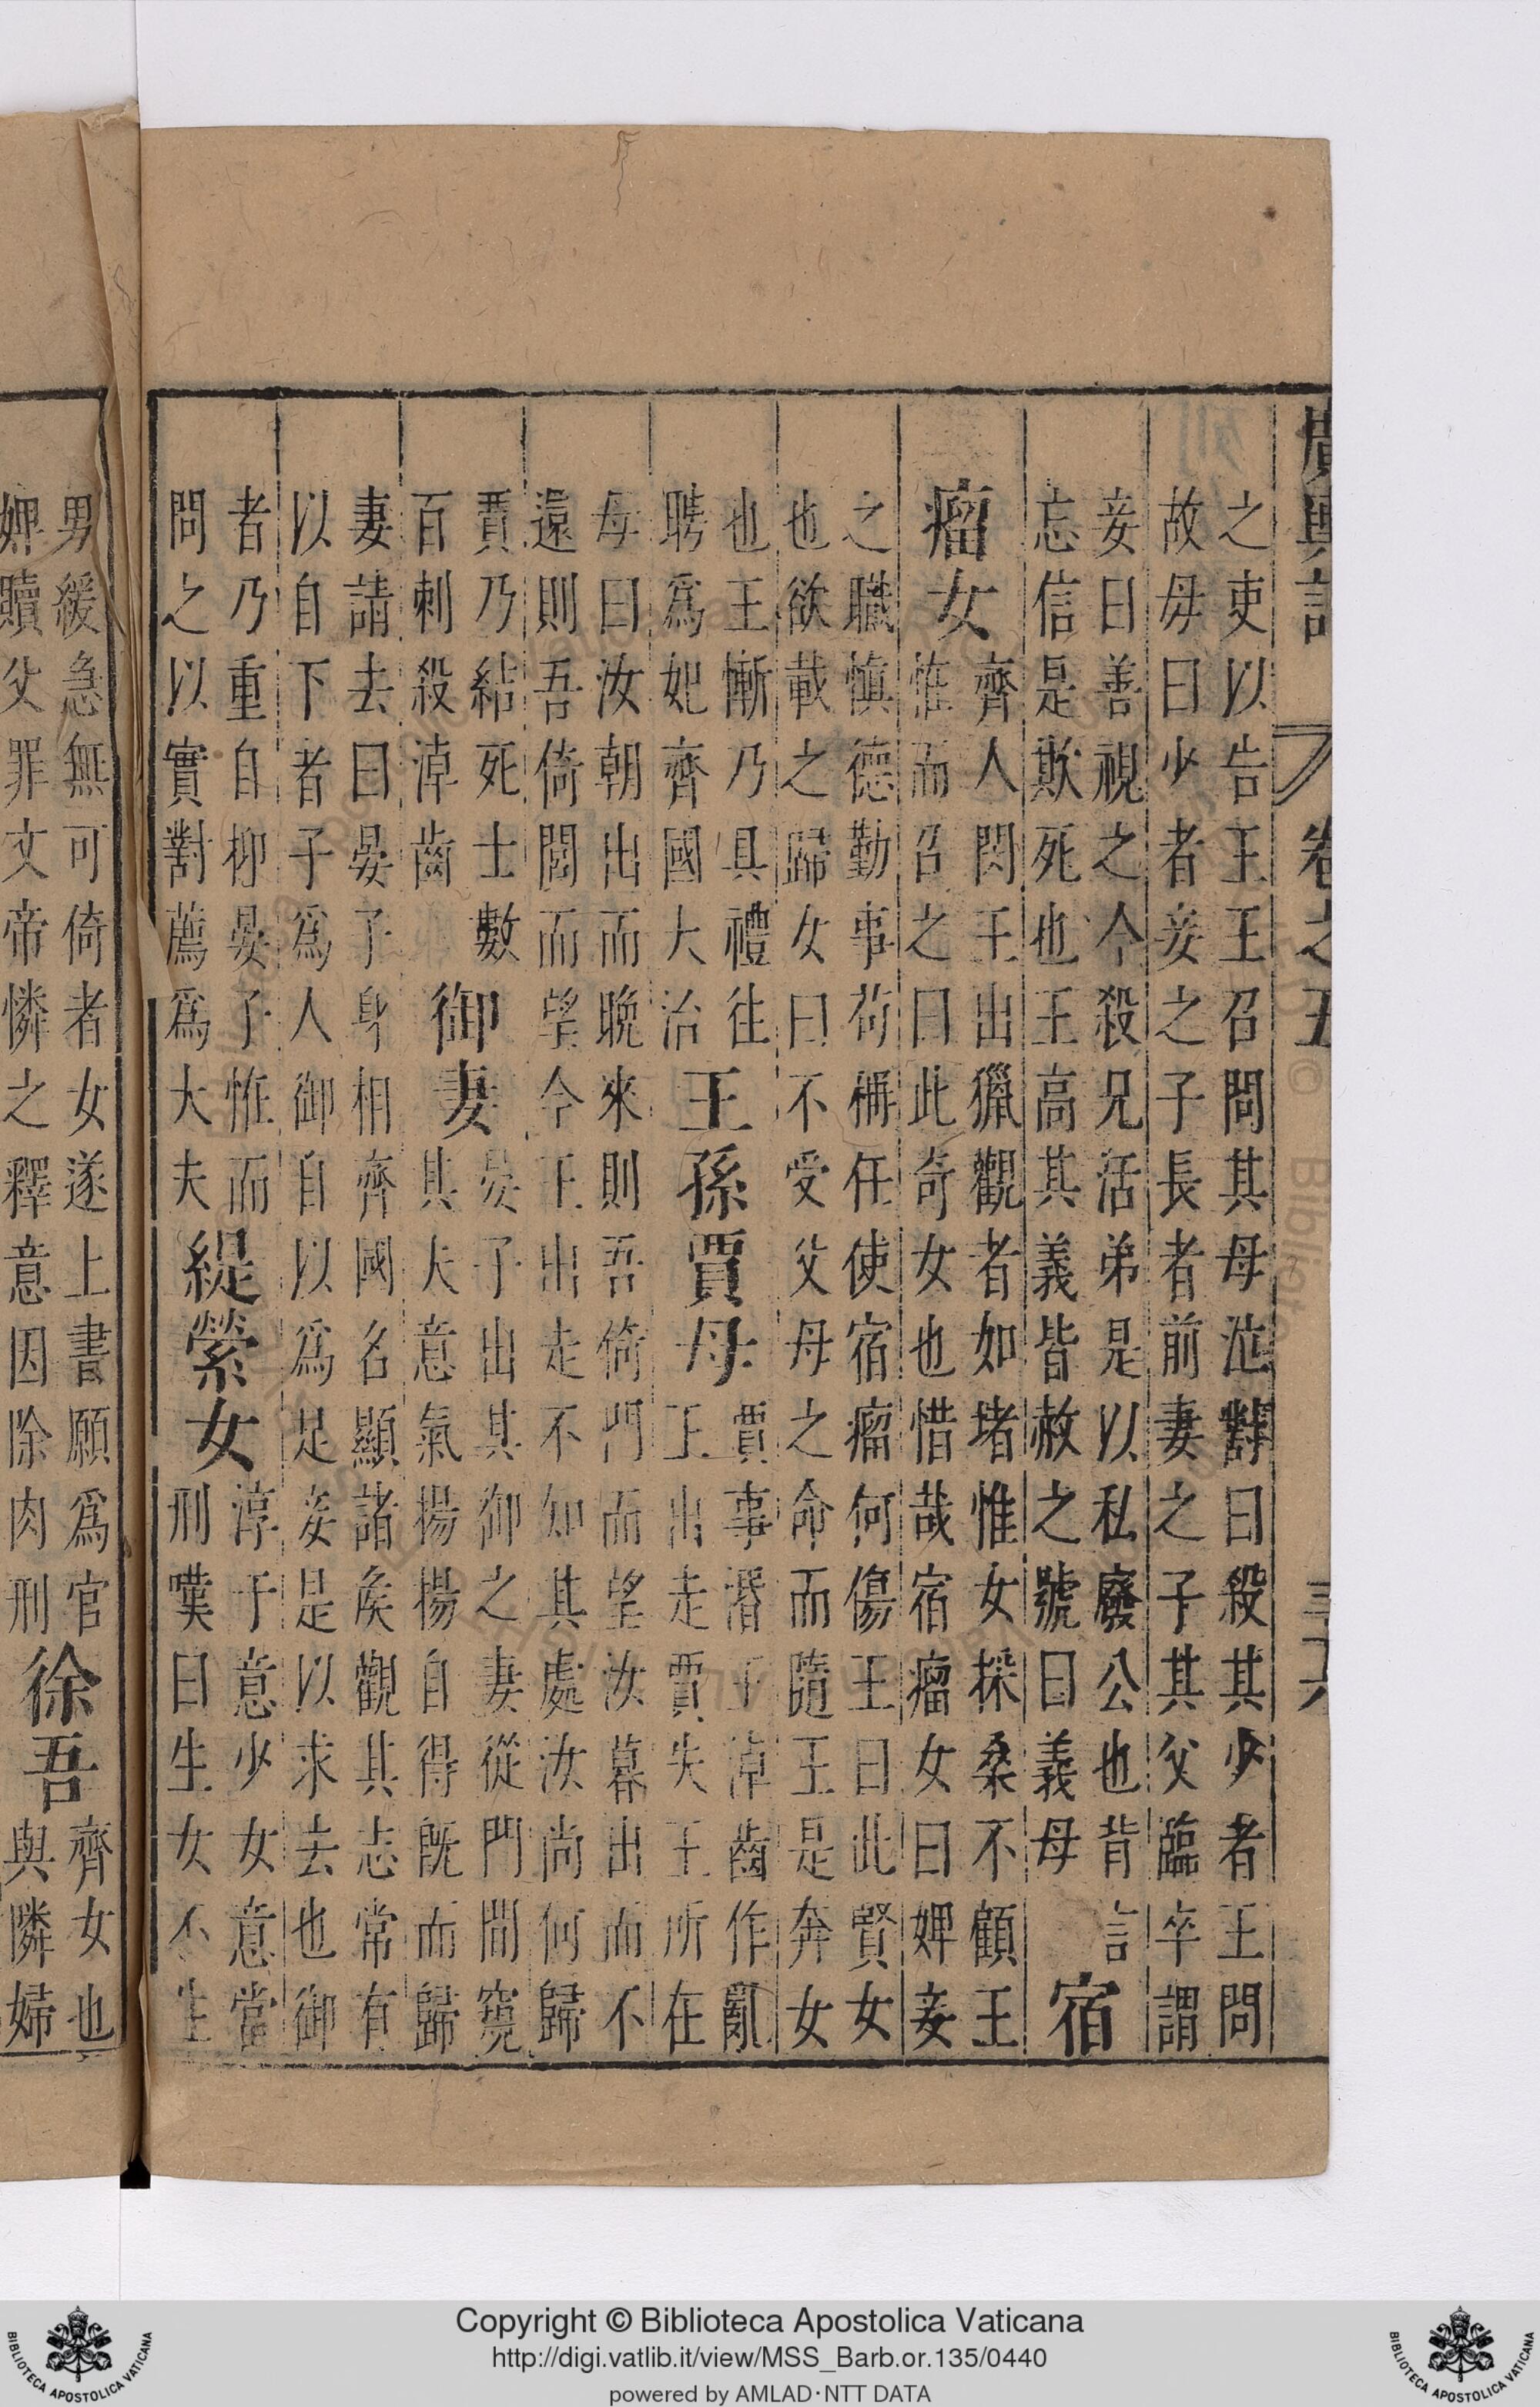 廣輿記 卷之五 三十六
之吏以告王王召問其母泣對曰殺其少者王問
故母曰少者妾之子長者前妻之子其父臨卒謂
妾曰善視之今殺兄活弟是以私廢公也背言
忘信是欺死也王高其義皆赦之號曰義母
宿
瘤女
齊人閔王出獵觀者如堵惟女採桑不顧王
怪而召之曰此奇女也惜哉宿瘤女曰婢妾
之職慎德勤事苟稱任使宿瘤何傷王曰此賢女
也欲載之歸女曰不受父母之命而隨王是奔女
也王慚乃具禮往
聘爲妃齊國大治
王孫賈母
賈事湣王淖齒作亂
王出走賈失王所在
母曰汝朝出而晚來則吾倚門而望汝暮出而不
遠則吾倚閭而望今王出走不知其處汝尚何歸
賈乃結死士數
百刺殺淖齒
御妻
晏子出其御之妻從門間窺
其夫意氣揚揚自得旣而歸
妻請去曰晏子身相齊國名顯諸侯觀其志常有
以自下者子爲人御自以爲足妾是以求去也御
者乃重自抑晏子怪而
問之以實對薦爲大夫
緹縈女
淳于意少女意當
刑嘆曰生女不生
男緩急無可倚者女遂上書願爲官
婢贖父罪文帝憐之釋意因除肉刑
徐吾
齊女也
與隣婦
Copyright © Biblioteca Apostolica Vaticana
http://digi.vatlib.it/view/MSS_Barb.or.135/0440
powered by AMLAD·NTT DATA
BIBLIOTECA APOSTOLICA VATICANA
BIBLIOTECA APOSTOLICA VATICANA